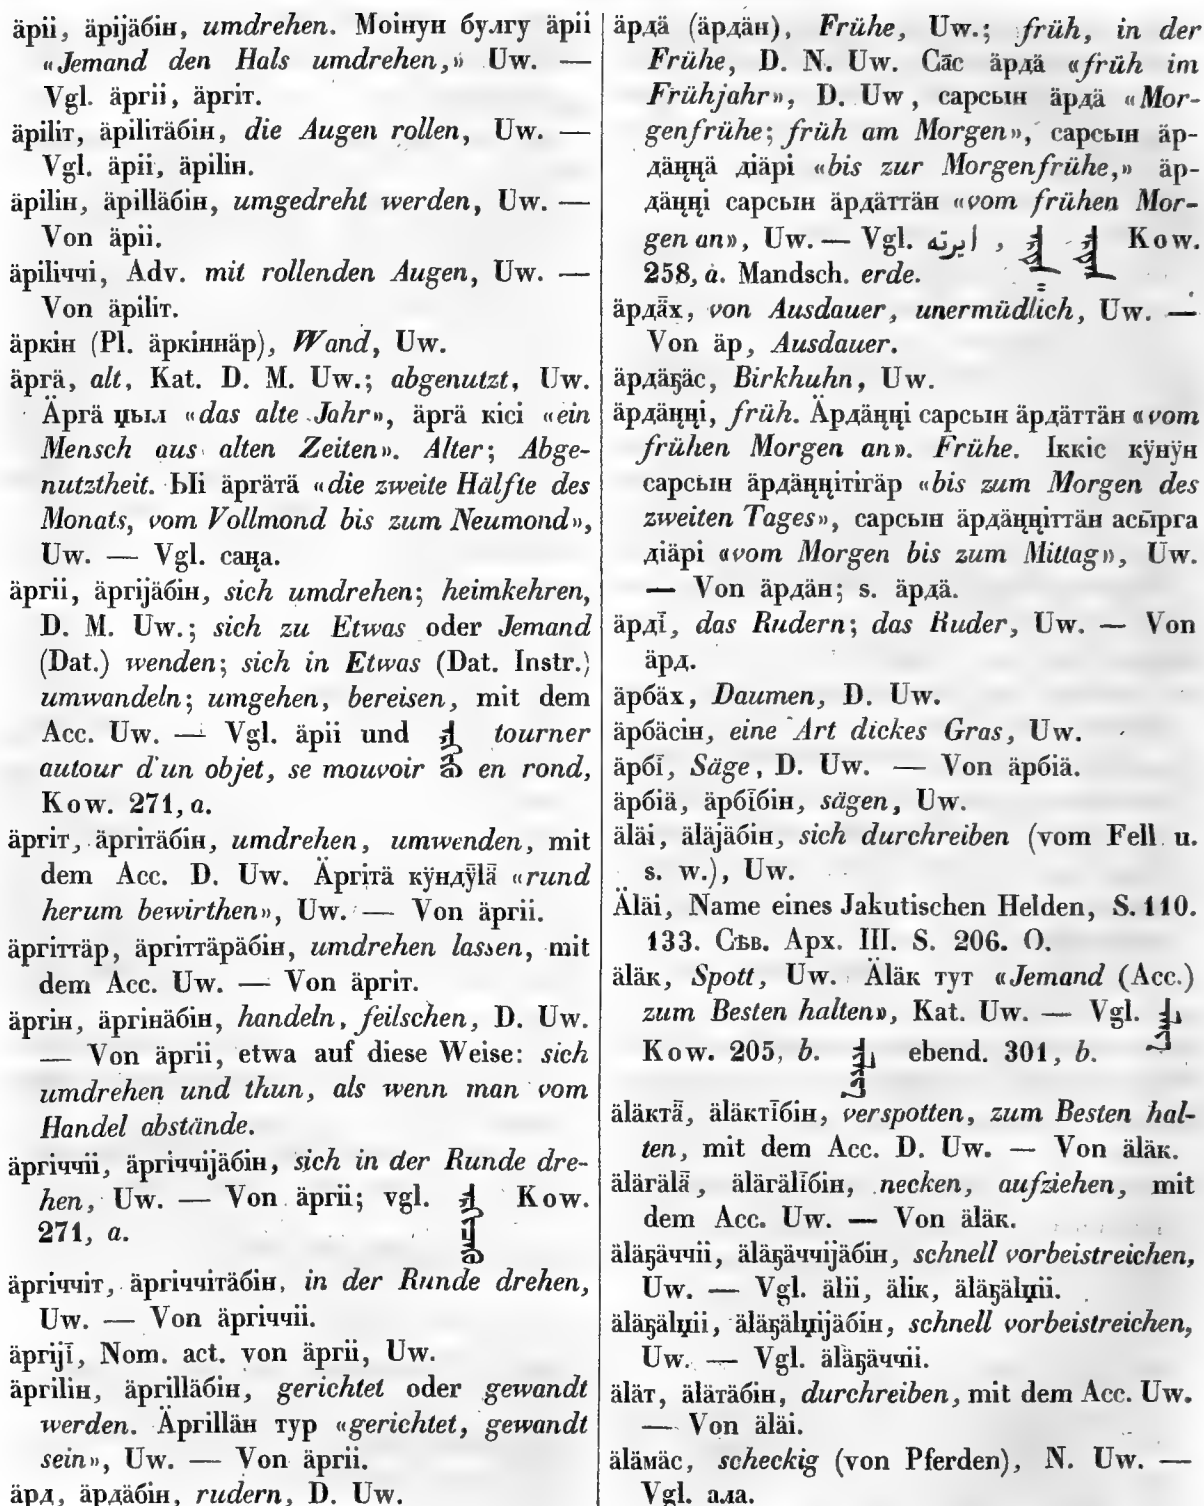 äpii, äpijäбін, umdrehen. Моінун булгу äpii
«Jemand den Hals umdrehen,» Uw. —
Vgl. äргii, äргіт.
äpiliт, äpiliтäбін, die Augen rollen, Uw. —
Vgl. äpii, äpilін.
äpilін, äpilläбін, umgedreht werden, Uw. —
Von äpii.
äpiliччi, Adv. mit rollenden Augen, Uw. —
Von äpiliт.
äркін (Pl. äркіннäр), Wand, Uw.
äргä, alt, Kat. D. M. Uw.; abgenutzt, Uw.
Äргä џыл «das alte Jahr», äргä кісі «ein
Mensch aus alten Zeiten». Alter; Abge-
nutztheit. Ыі äргäтä «die zweite Hälfte des
Monats, vom Vollmond bis zum Neumond»,
Uw. — Vgl. саҥа.
äргii, äргijäбін, sich umdrehen; heimkehren,
D. M. Uw.; sich zu Etwas oder Jemand
(Dat.) wenden; sich in Etwas (Dat. Instr.)
umwandeln; umgehen, bereisen, mit dem
Acc. Uw. — Vgl. äpii und tourner
autour d'un objet, se mouvoir en rond,
Kow. 271, a.
äргіт, äргітäбін, umdrehen, umwenden, mit
dem Acc. D. Uw. Äргітä кӱндӱ̄lǟ «rund
herum bewirthen», Uw. — Von äргii.
äргіттäр, äргіттäрäбін, umdrehen lassen, mit
dem Acc. Uw. — Von äргіт.
äргін, äргінäбін, handeln, feilschen, D. Uw.
— Von äргii, etwa auf diese Weise: sich
umdrehen und thun, als wenn man vom
Handel abstände.
äргіччii, äргіччijäбін, sich in der Runde dre-
hen, Uw. — Von äргii; vgl. Kow.
271, a.
äргіччіт, äргіччітäбін, in der Runde drehen,
Uw. — Von äргіччii.
äргijī, Nom. act. von äргii, Uw.
äргilін, äргilläбін, gerichtet oder gewandt
werden. Äргilläн тур «gerichtet, gewandt
sein», Uw. — Von äргii.
äрд, äрдäбін, rudern, D. Uw.
äрдä (äрдäн), Frühe, Uw.; früh, in der
Frühe, D. N. Uw. Cāc äрдä «früh im
Frühjahr», D. Uw, сарсын äрдä «Mor-
genfrühe; früh am Morgen», сарсын äр-
дäҥҥä діäрі «bis zur Morgenfrühe,» äр-
дäҥҥі сарсын äрдäттäн «vom frühen Mor-
gen an», Uw. — Vgl. ایرته , Kow.
258, a. Mandsch. erde.
äрдǟх, von Ausdauer, unermüdlich, Uw. —
Von äр, Ausdauer.
äрдäҕäс, Birkhuhn, Uw.
äрдäҥҥі, früh. Äрдäҥҥі сарсын äрдäттäн «vom
frühen Morgen an». Frühe. Іккіс кӱнӱн
сарсын äрдäҥҥітігäр «bis zum Morgen des
zweiten Tages», сарсын äрдäҥҥіттäн асы̄рга
діäрі «vom Morgen bis zum Mittag», Uw.
— Von äрдäн; s. äрдä.
äрдī, das Rudern; das Ruder, Uw. — Von
äрд.
äрбäх, Daumen, D. Uw.
äрбäсін, eine Art dickes Gras, Uw.
äрбī, Säge, D. Uw. — Von äрбіä.
äрбіä, äрбībін, sägen, Uw.
äläi, äläjäбін, sich durchreiben (vom Fell u.
s. w.), Uw.
Äläi, Name eines Jakutischen Helden, S. 110.
133. Сѣв. Арх. III. S. 206. O.
äläк, Spott, Uw. Äläк тут «Jemand (Acc.)
zum Besten halten», Kat. Uw. — Vgl.
Kow. 205, b. ebend. 301, b.
äläктǟ, äläктībін, verspotten, zum Besten hal-
ten, mit dem Acc. D. Uw. — Von äläк.
äläгälǟ, äläгälībін, necken, aufziehen, mit
dem Acc. Uw. — Von äläк.
äläҕäччii, äläҕäччijäбін, schnell vorbeistreichen,
Uw. — Vgl. älii, äliк, äläҕälџii.
äläҕälџii, äläҕälџijäбін, schnell vorbeistreichen,
Uw. — Vgl. äläҕäччii.
äläт, äläтäбін, durchreiben, mit dem Acc. Uw.
— Von äläi.
äläмäс, scheckig (von Pferden), N. Uw. —
Vgl. ала.